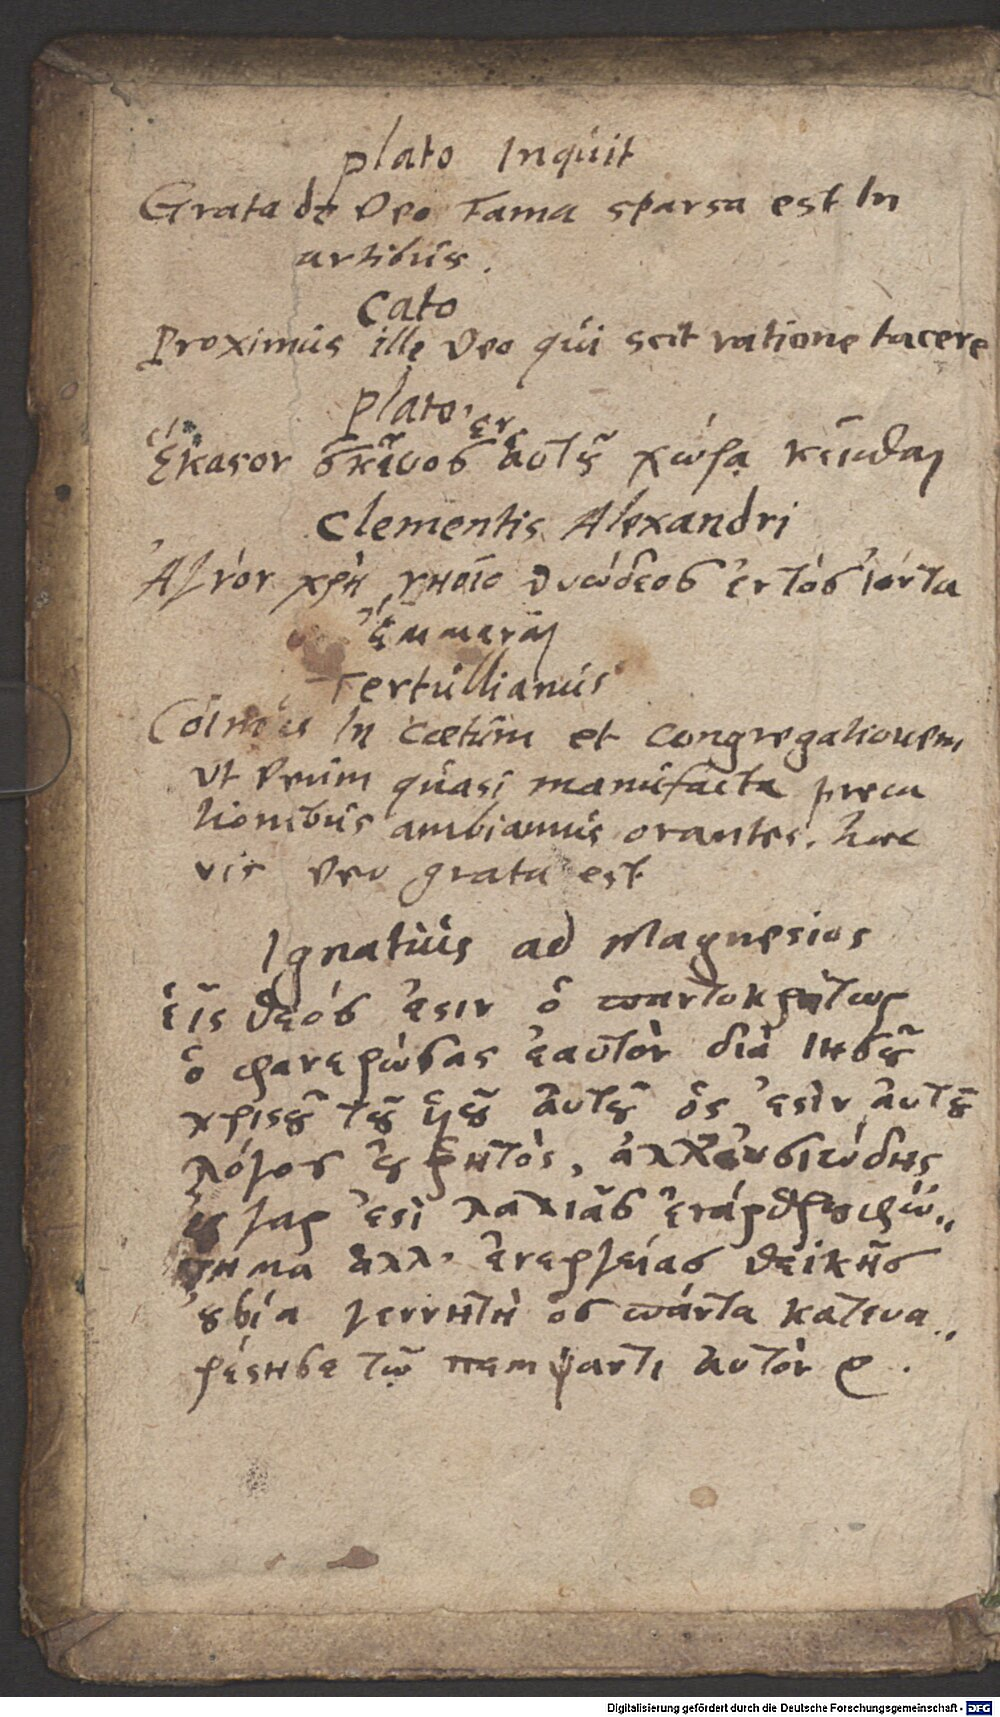 plato Inquit
Grata de Deo Fama sparsa est In
artibus.
Cato
Proximus ille Deo qui scit ratione tacere
plato
ἕκαστον σκεῦος ἐν ἑαυτοῦ χώρᾳ κεῖσθαι
Clementis Alexandri
Ἁγνὸν χρὴ νηοῖο θυώδεος ἐντὸς ἰόντα
ἔμμεναι
Tertullianus
Coimus In cœtum et congregationem
ut Deum quasi manu facta preca
tionibus ambiamus orantes. hæc
vis Deo grata est
Ignatius ad Magnesios
εἷς θεός ἐστιν ὁ παντοκράτωρ
ὁ φανερώσας ἑαυτὸν διὰ ιησοῦ
χριστοῦ τοῦ ὑιοῦ ἀυτοῦ ὅς ἐστὶν ἀυτοῦ
λόγος οὐ ῥητὸς, ἀλλ' οὐσιώδης
οὐ γάρ ἐστὶ λαλιᾶς ἐνάρθρου φώ„
νημα ἀλλ' ἐνεργείας θεϊκῆς
οὐσία γεννητὴ ὃς πάντα κατευα„
ρέστησε τῷ πεμψαντι ἀυτὸν
Digitalisierung gefördert durch die Deutsche Forschungsgemeinschaft - DFG